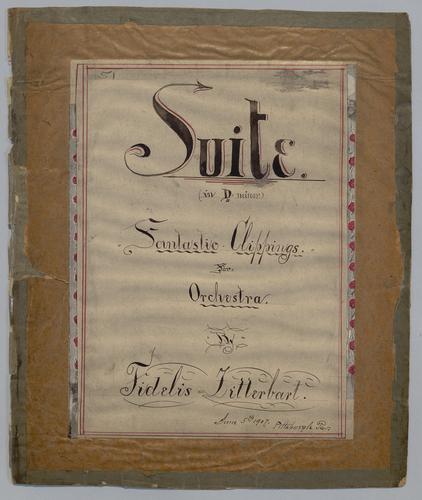 Suite.
(in D minor)
Fantastic Clippings.
For
Orchestra.
By
Fidelis Zitterbart.
June 5th 1907. Pittsburgh Pa.